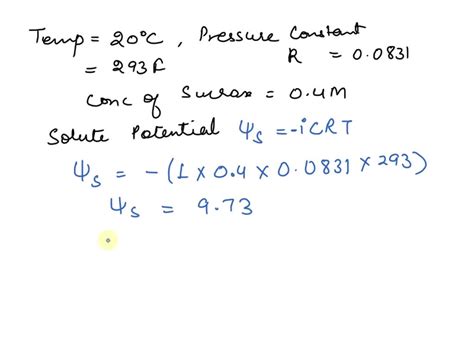 Temp = 20°C , Pressure Constant
= 293F R = 0.0831
Conc of Sucrose = 0.4M
Solute Potential Ψs = -iCRT
Ψs = - (1 × 0.4 × 0.0831 × 293)
Ψs = 9.73